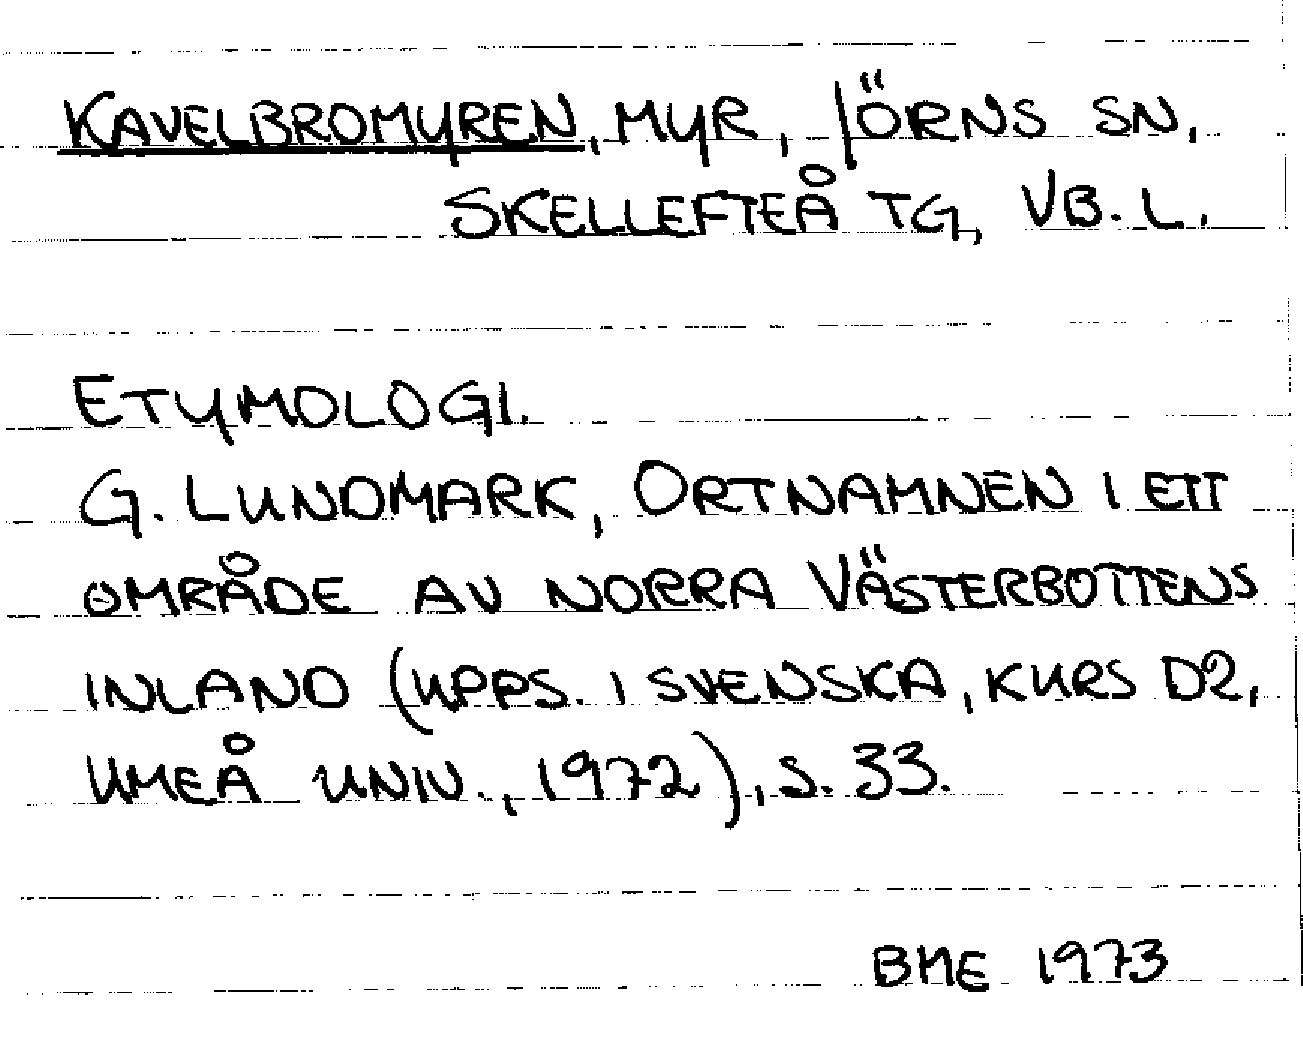 KAVELBROMYREN, MYR, JÖRNS SN,
SKELLEFTEÅ TG, VB. L.
ETYMOLOGI.
G. LUNDMARK, ORTNAMNEN I ETT
OMRÅDE AV NORRA VÄSTERBOTTENS
INLAND (UPPS. I SVENSKA, KURS D2,
UMEÅ UNIV., 1972), S. 33.
BME 1973